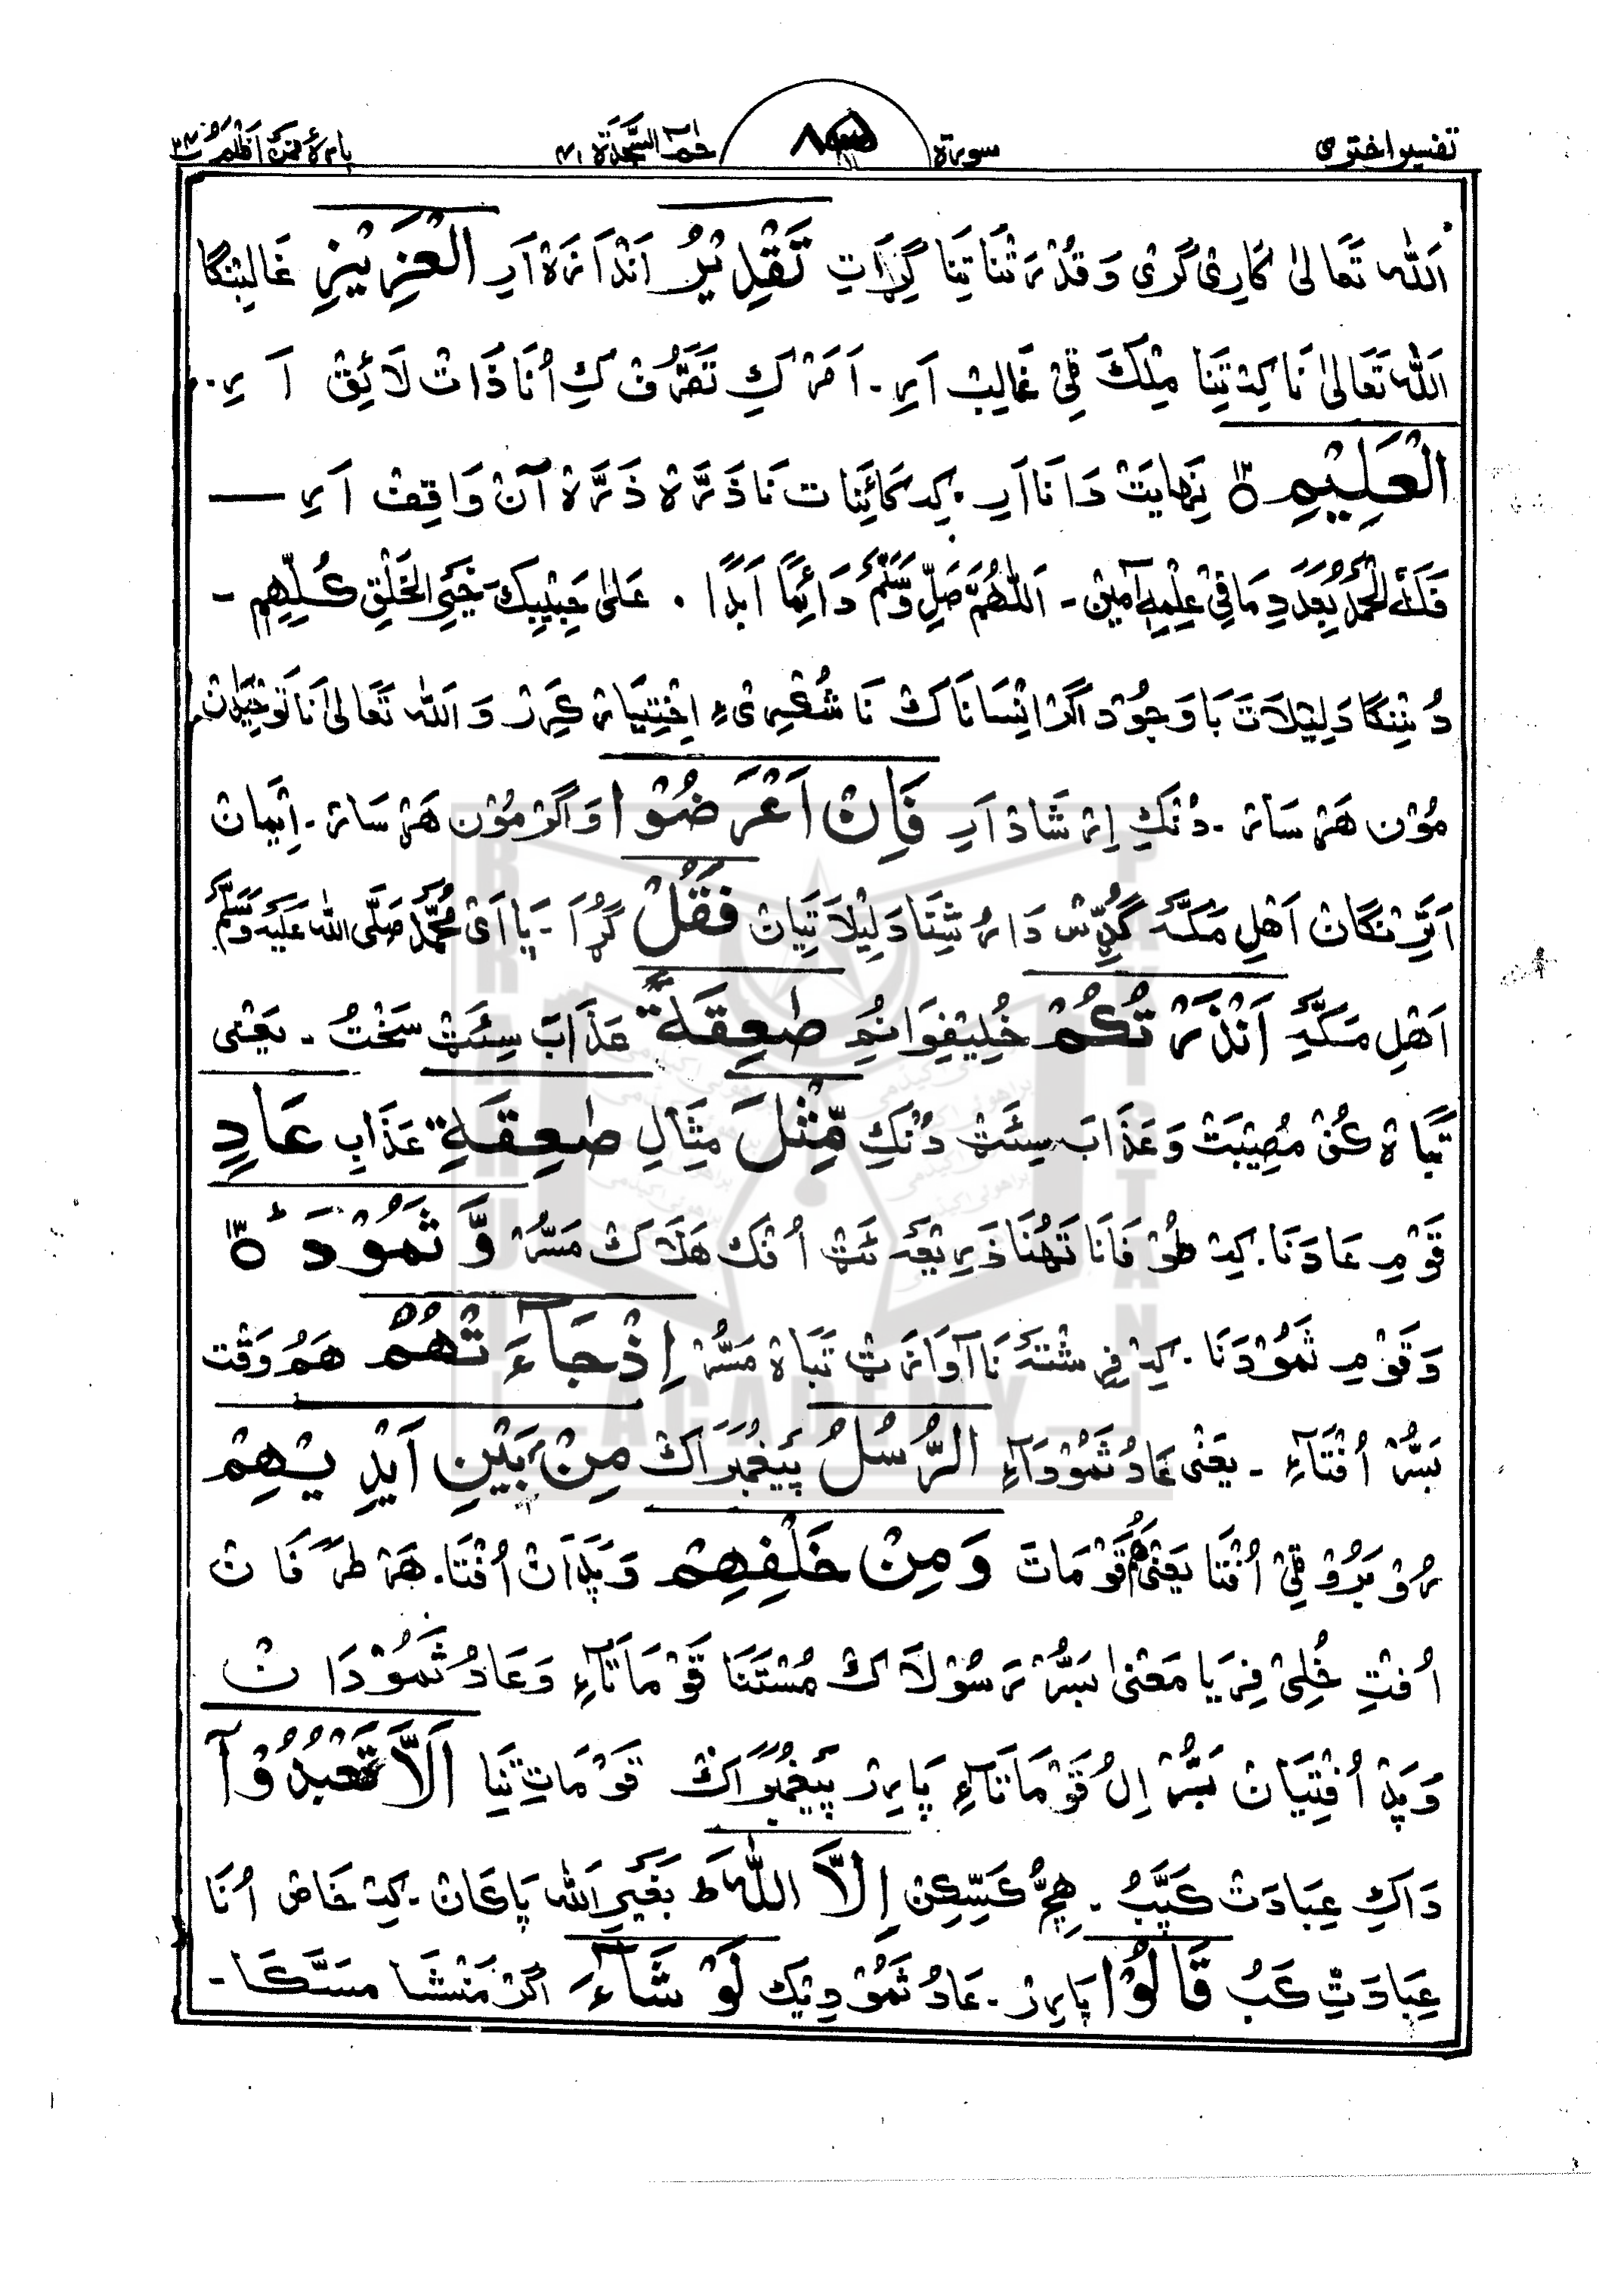 تفسیر اختری سورة حٰمٓ السَّجْدَة ٤١ پارہ فَمَنْ اَظْلَمُ ٢٤
اَللّٰه تَعَالیٰ کَارِیْ گَرِیْ وَ قُدْرَتْنَا تِنَا گِڑَاتِ تَقْدِیْرُ اَنْدَازَہ اَرِ الْعَزِیْزِ غَالِبْنگَا
اَللّٰه تَعَالیٰ نَا کِہ تِنَا مِلْکَ ٹِیْ غَالِبْ اَرِ۔ اَمَرْ کِ تَصَرُّفْ کِ اُنَا ذَاتْ لَائِقْ اَرِ۔
الْعَلِیْمِ ۝ نِہَایَتْ دَانَا اَرِ۔ کِہ کَائِنَات نَا ذَرَّہ ذَرَّہ آنْ وَاقِفْ اَرِ —
فَلَهُ الْحَمْدُ بِعَدَدِ مَا فِیْ عِلْمِهٖ آمِیْن۔ اَللّٰهُمَّ صَلِّ وَسَلِّمْ دَائِمًا اَبَدًا۔ عَلیٰ حَبِیْبِكَ خَیْرِ الْخَلْقِ كُلِّهِمِ۔
دُنِنگَا دَلِیْلَاتَ بَاوَجُوْد اَگَرْ اِنْسَانَاکْ نَا شُکْرِیْءِ اِخْتِیَار کَرِرْ وَ اَللّٰه تَعَالیٰ نَا تَوْحِیْدَانْ
مُوْن ہَرْسَار۔ دُنْکِ اِرْشَاد اَرِ فَاِنْ اَعْرَضُوْا وَ اَگَرْ مُوْن ہَرْسَار۔ اِیْمَانْ
اَہْلِ مَکَّہ دَلِیْلَا تِیَانْ فَقُلْ گُڑَا۔ پَا اَیْ مُحَمَّدْ صَلَّی اللّٰه عَلَیْهِ وَسَلَّمَ
اَهْلِ مَکَّہِ اَنْذَرْتُكُمْ خُلِیْفِوَانُمِ صٰعِقَةً عَذَابَ سِئَتْ سَخْتُ۔ یَعْنی
تَبَاہ کُنْ مُصِیْبَتْ وَ عَذَابَ سِئَتْ دُنْکِ مِّثْلَ مِثَالِ صٰعِقَةِ عَذَابِ عَادٍ
قَوْمِ عَادَنَا۔ کِہ طُوْفَانَا تَہُنَا ذَرِیْعَہ ئَتْ اُفْک ہَلَاکْ مَسُّرْ وَّ ثَمُوْدَ ۝
وَ قَوْمِ ثَمُوْدَنَا۔ کِہ فِرِشْتَہ نَا آوَازَتْ تَبَاہ مَسُّرْ اِذْ جَآءَتْهُمُ ہَمُ وَقْت
بَسُّرْ اُفْتَآءِ۔ یَعْنی عَادُ ثَمُوْدَآءِ الرُّسُلُ پَیْغَمْبَرَاکْ مِنْۢ بَیْنِ اَیْدِیْهِمْ
رُوْ بَرُوْ ٹِیْ اُفْتَا یَعْنی قَوْمَاتَ وَ مِنْ خَلْفِهِمْ وَ پَدَانْ اُفْتَا۔ ہَرْ طَرَفَانْ
اُفْتِ خُلِیْفِرْ یَا مَعْنیٰ بَسُّرْ رَسُوْلَاکْ مُسْتَنَا قَوْمَاتَآءِ وَ عَادُ ثَمُوْدَانْ
وَ پَدْ اُفْتِیَانْ بَسُّرْ اِلُ قَوْمَاتَآءِ پَارِرْ پَیْغَمْبَرَاکْ قَوْمَاتِ تِنَا اَلَّا تَعْبُدُوْۤا
دَاکِ عِبَادَتْ کَپَّبُ۔ ہِچُّ کَسِّکِن اِلَّا اللّٰهَ ط بَغَیْرِ اَللّٰه پَاکَانْ۔ کِہ خَاصْ اُنَا
عِبَادَتِّ کَبُ قَالُوْا پَارِرْ۔ عَادُ ثَمُوْدِیْک لَوْ شَآءَ اَگَرْ مَنْشَا مَسَّکَا۔
BRAHUI ACADEMY PAKISTAN